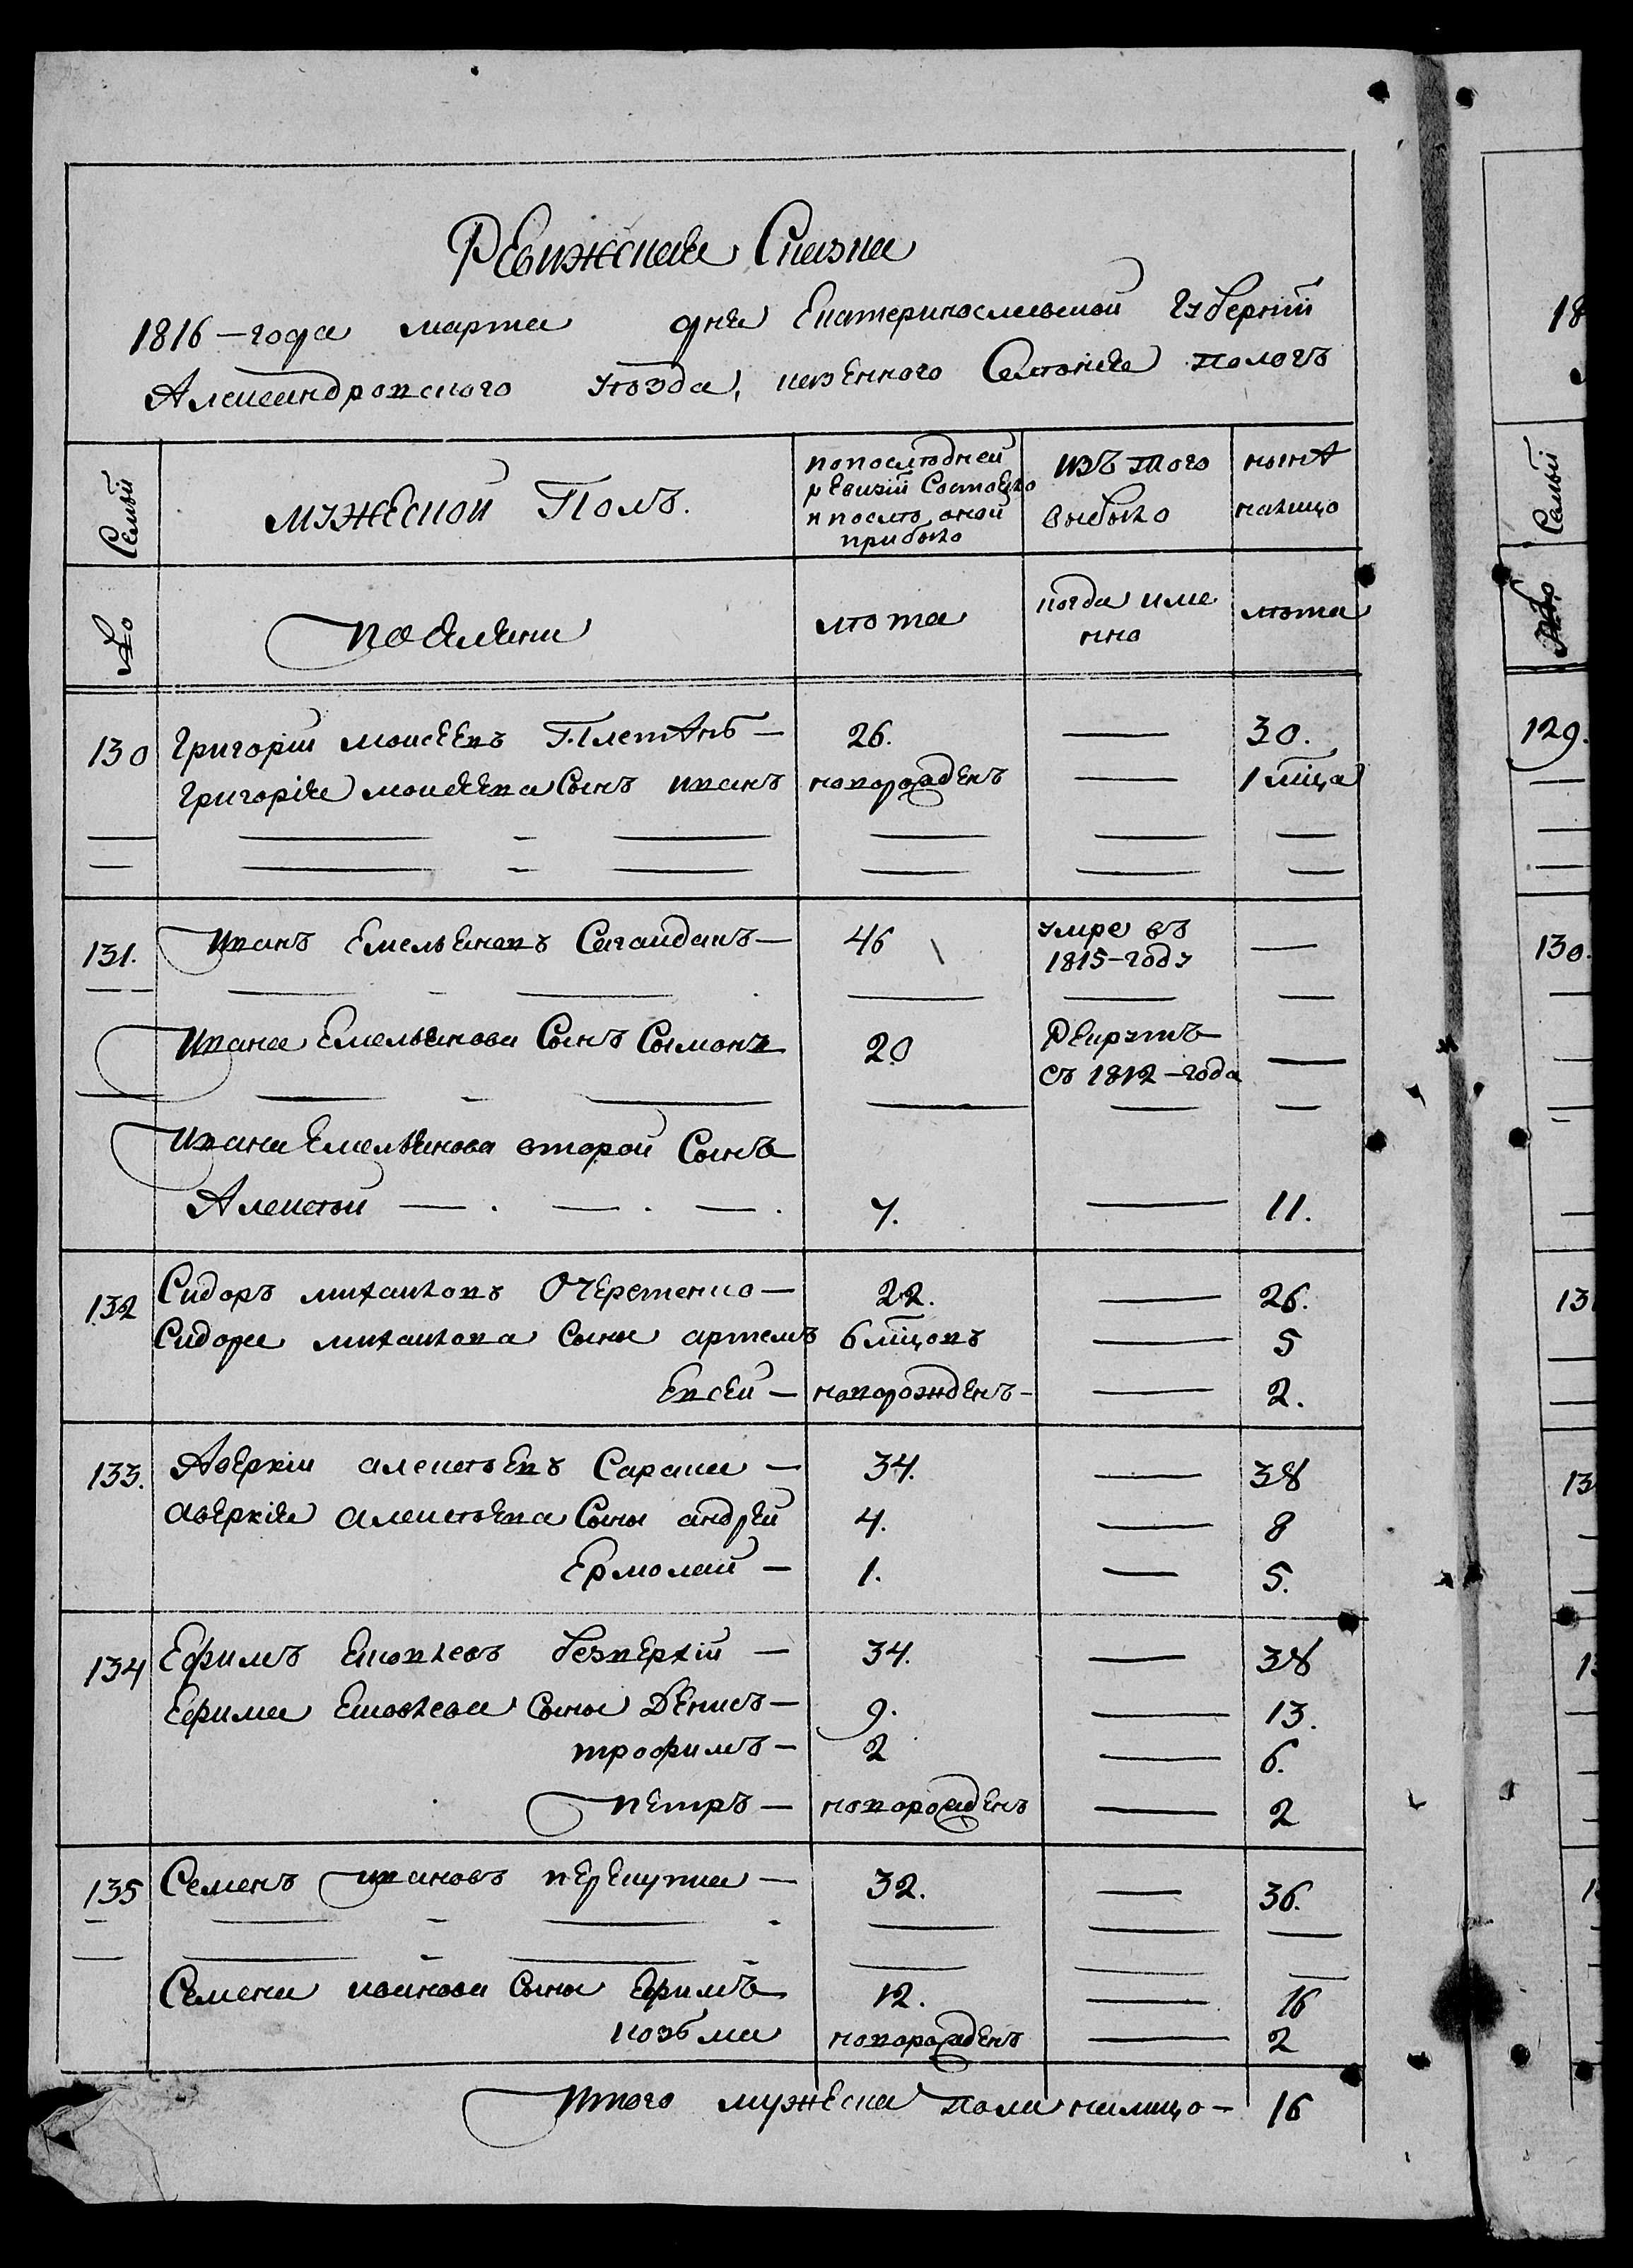 Ревижская Сказка
1816-года марта дня Екатеринославской губерніи
Александровского уѣзда, казенного Селѣнія Пологъ
Семьи
мужеской Полъ.
попослѣдней ревизіи Состояло и послѣ оной прибыло
изъ того выбыло
нынѣ налицо
№
лѣта
когда имено
лѣта
130 Григорій моисѣевъ Плетѣнь — 26. — 30.
Григорія моисѣева Сынъ иванъ новорожденъ — 1 мца
131. иванъ Емельяновъ Сагайдакъ — 46 умре въ 1815-году —
ивана Емельянова Сынъ Сымонъ 20 Рекрутъ съ 1812-года —
ивана Емельянова второй Сынъ
Алексѣй — . — . — . 7. — 11.
132 Сидоръ михайловъ Очеретенко — 22. — 26.
Сидора михайлова сыны артемъ 6 мцовъ — 5
Евсей — новорожденъ — — 2.
133. Аверкій алексѣевъ Сарана — 34. — 38
аверкія алексѣева Сыны андрей 4. — 8
Ермолай — 1. — 5.
134 Ефимъ Яковлевъ безверхій — 34. — 38
Ефима Яковлева сыны Денисъ — 9. — 13.
трофимъ — 2 — 6.
петръ — новорожденъ — 2
135 Семенъ ивановъ — 32. — 36.
Семена иванова Сыны Ефимъ 12. — 16
козьма новорожденъ — 2
итого мужеска пола налицо — 16
18
Семьи
№
129.
130.
13
13
13
1